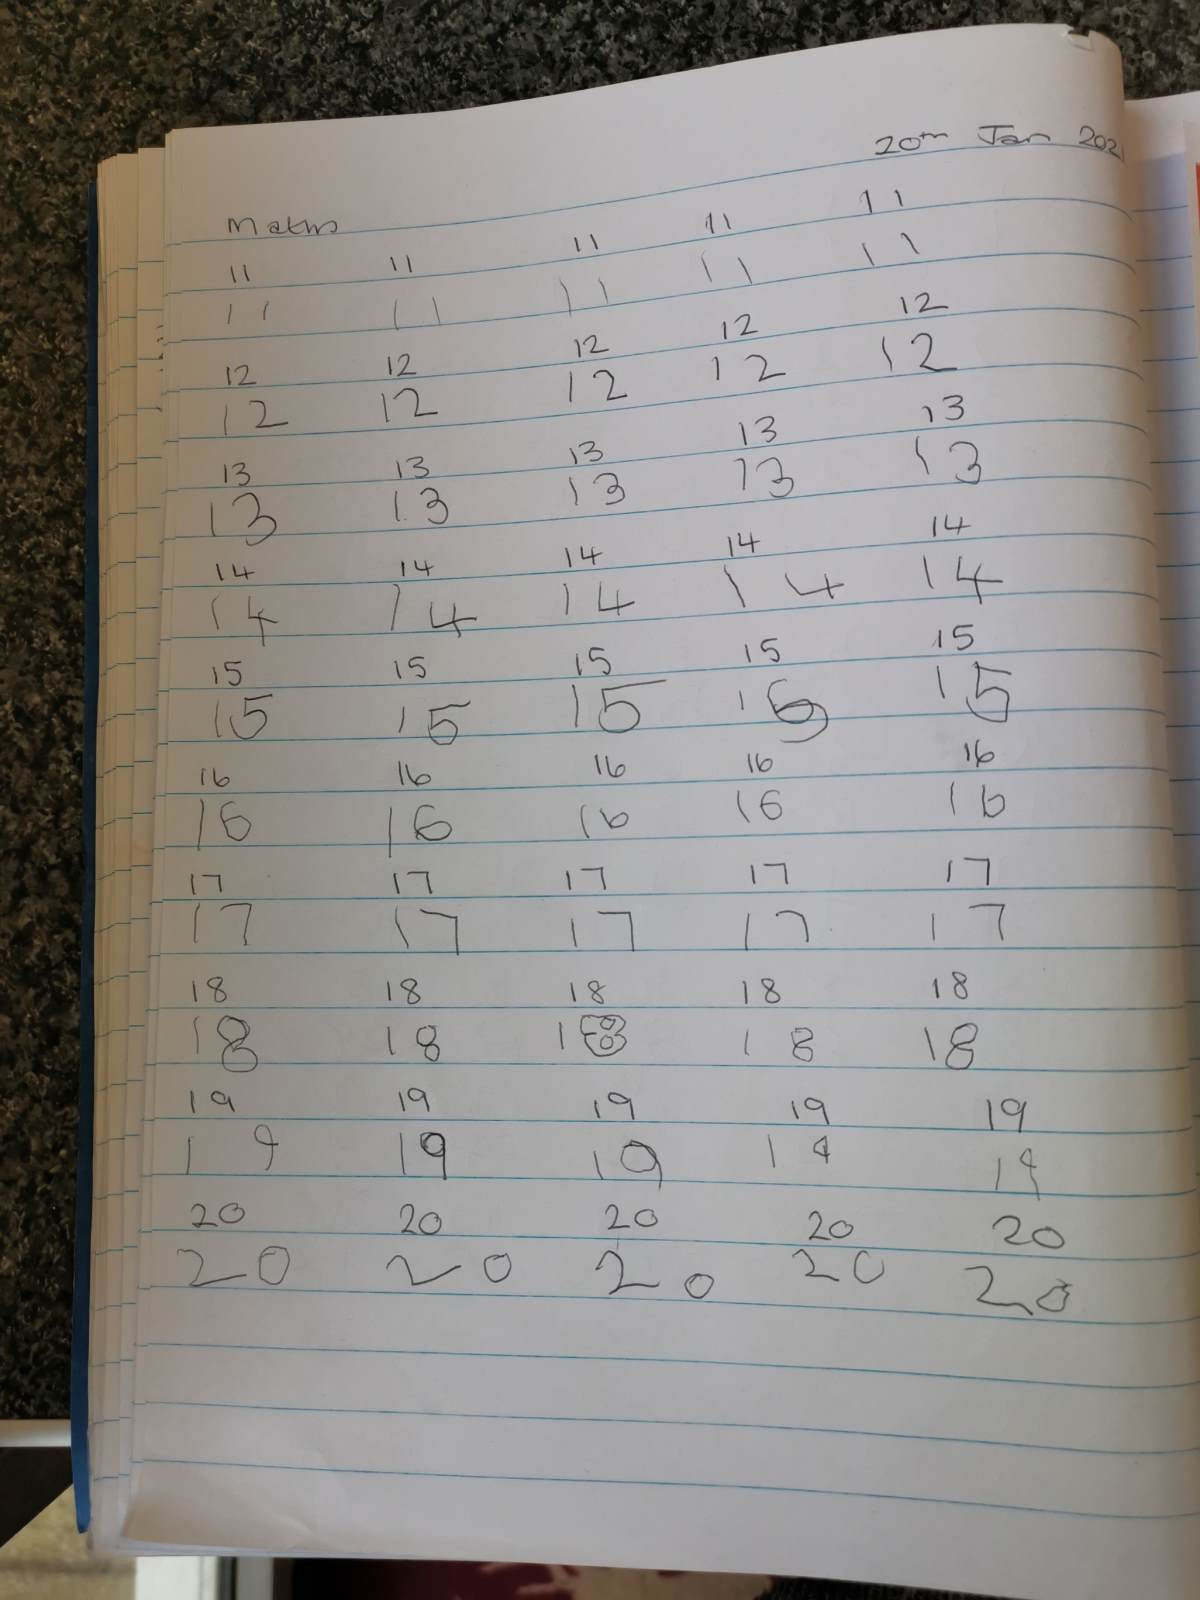 20th Jan 2021
Maths
11 11 11 11 11
11 11 11 11 11
12 12 12 12 12
12 12 12 12 12
13 13 13 13 13
13 13 13 13 13
14 14 14 14 14
14 14 14 14 14
15 15 15 15 15
15 15 15 15 15
16 16 16 16 16
16 16 16 16 16
17 17 17 17 17
17 17 17 17 17
18 18 18 18 18
18 18 18 18 18
19 19 19 19 19
19 19 19 19 19
20 20 20 20 20
20 20 20 20 20